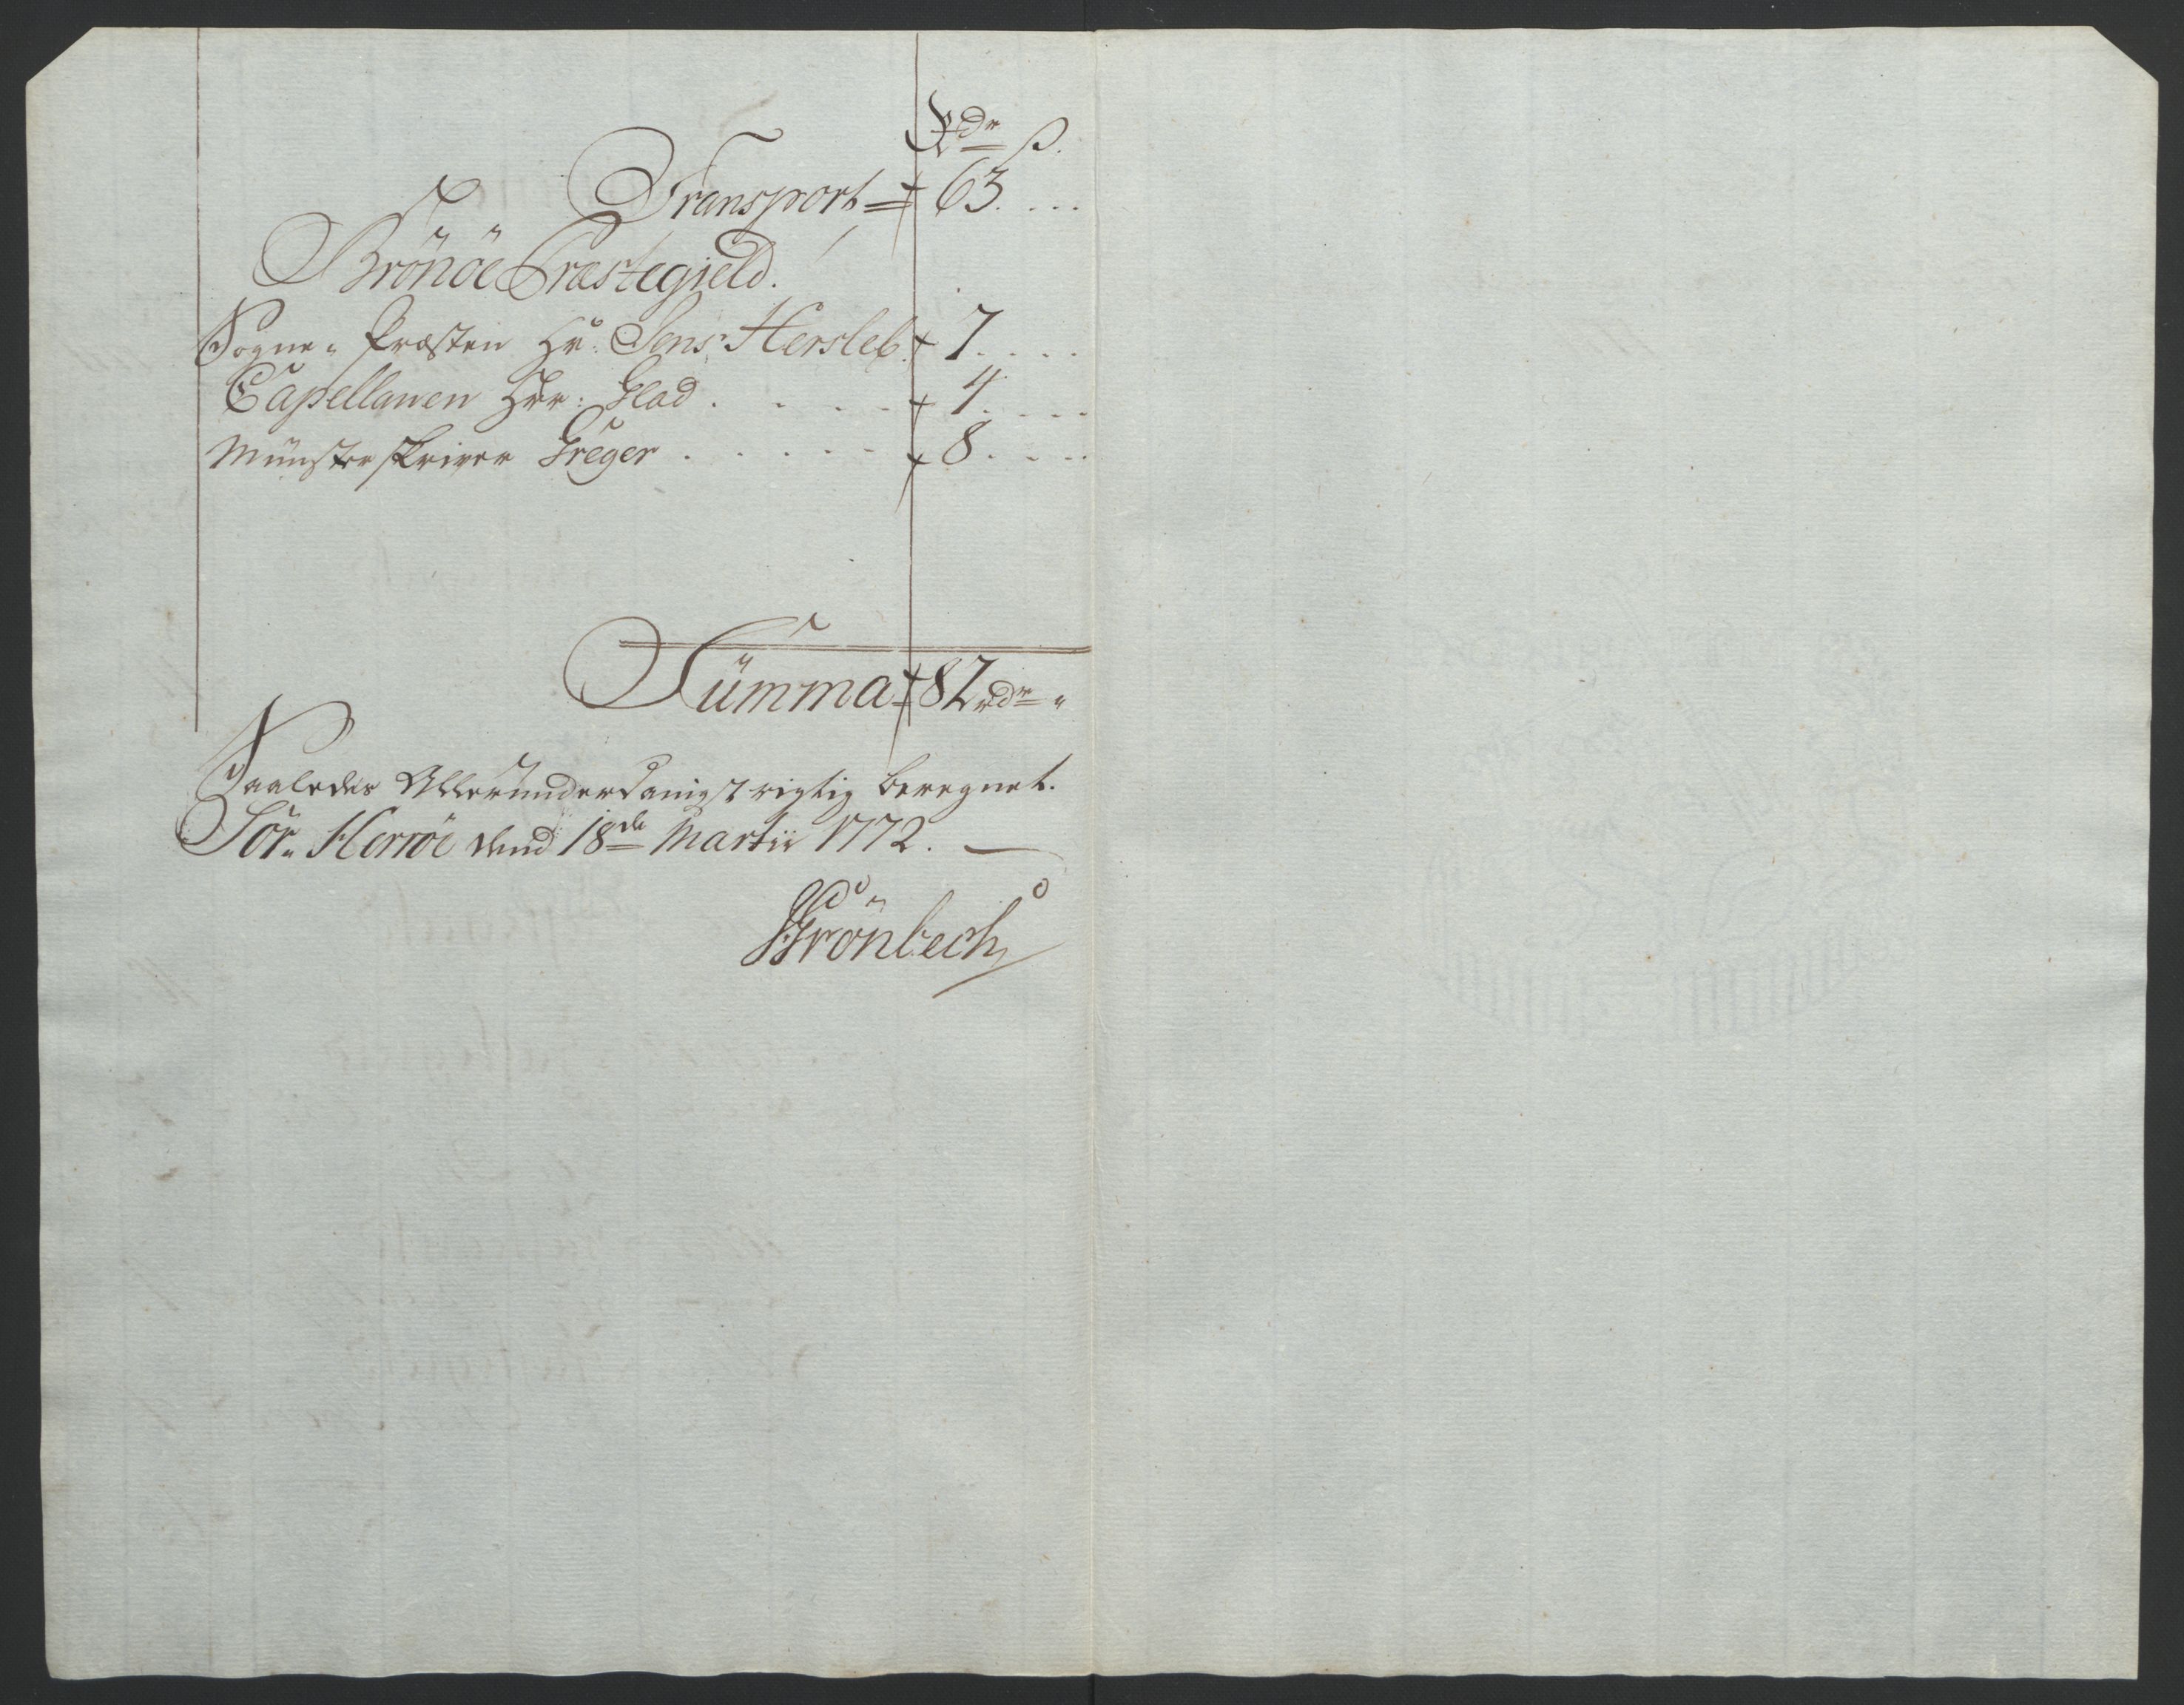 Rdr ß.
Transport 63. . . .
Brönöe Præstegield.
Sogne- Præsten Hr: Jens Hersleb. 7. . . .
Capellanen Hrr: Glad . . . . 4. . . . .
Münsterskriver Greger . . . . . 8. . . . .
Summa 82 rdr "
Saaledes Allerunderdanigst rigtig beregnet.
Sör- Herröe dend 18de Martii 1772.
Grönbech